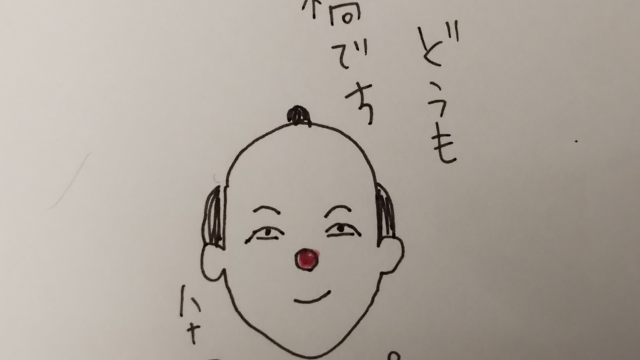 どうも
でち
ハナ